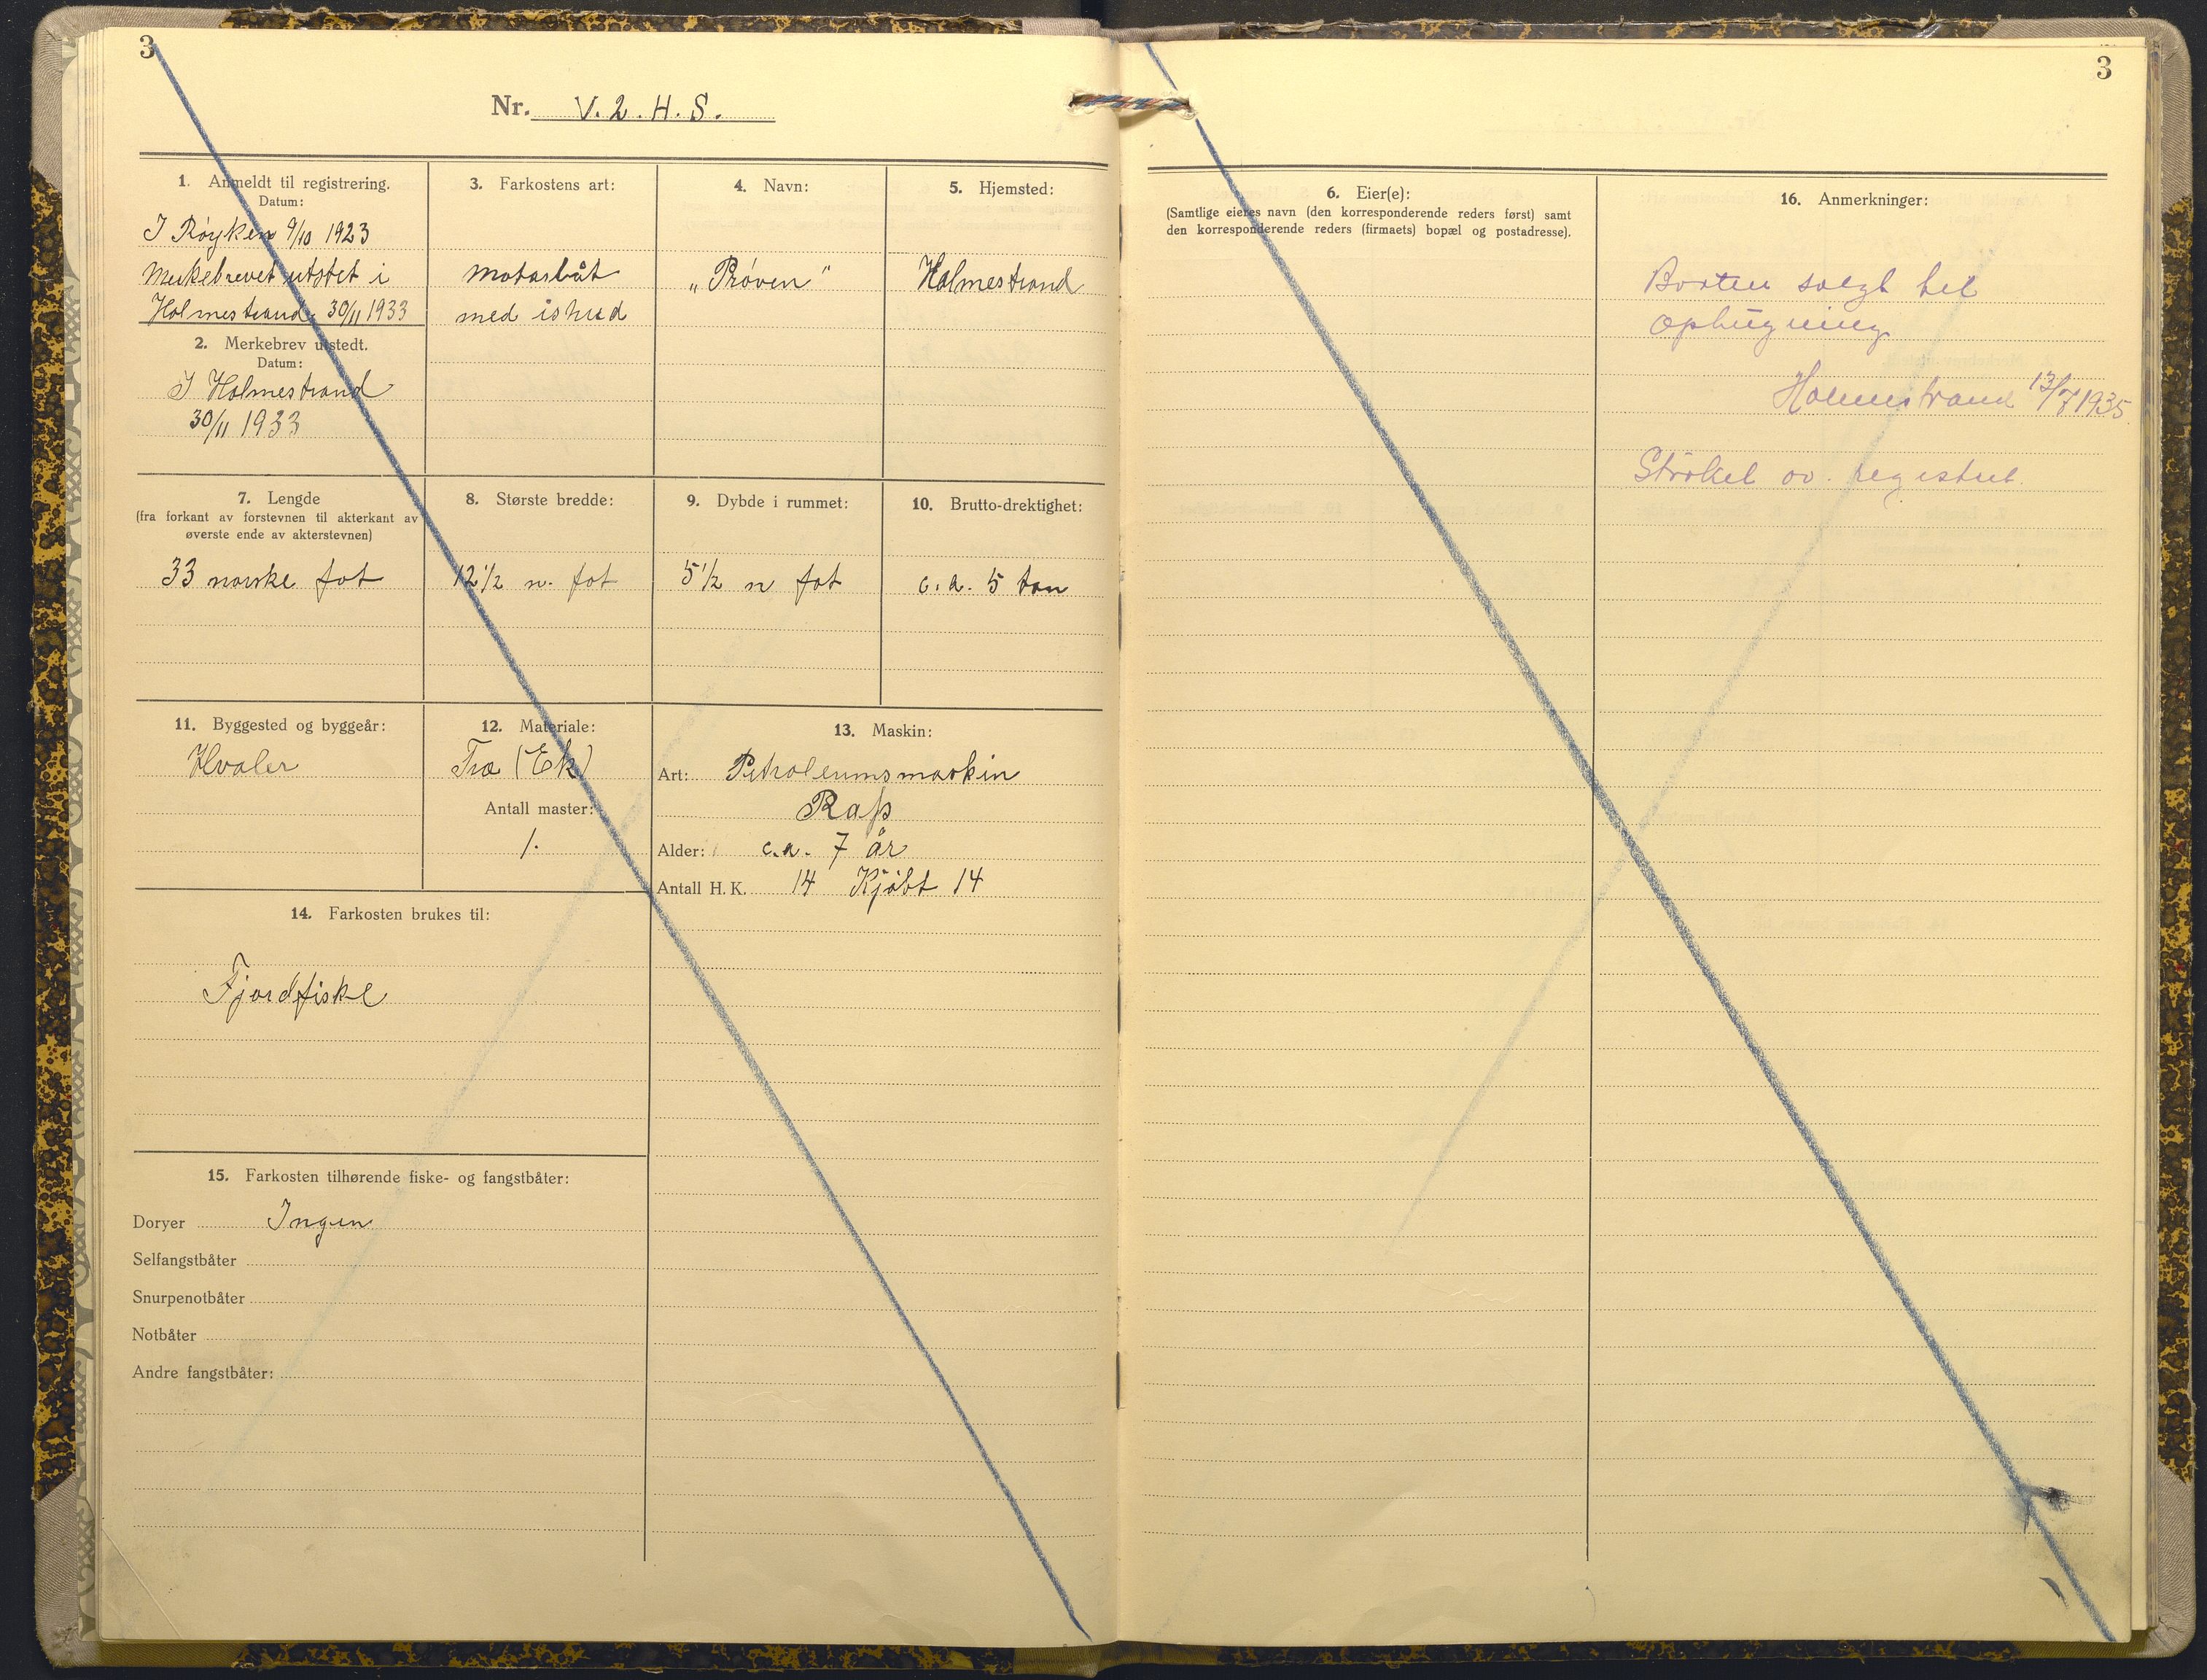 3
Nr. V. 2. H. S.
1. Anmeldt til registrering.
Datum:
I Røyken 9/10 1923
Merkebrevet utstet i
Holmestrand. 30/11 1933
2. Merkebrev utstedt.
Datum:
I Holmestrand
30/11 1933
3. Farkostens art:
motorbåt
med ishud
4. Navn:
„Prøven“
5. Hjemsted:
Holmestrand
7. Lengde
(fra forkant av forstevnen til akterkant av
øverste ende av akterstevnen)
33 norske fot
8. Største bredde:
12 1/2 n. fot
9. Dybde i rummet:
5 1/2 n fot
10. Brutto-drektighet:
c. a. 5 ton
11. Byggested og byggeår:
Hvaler
12. Materiale:
Træ (Ek)
Antall master:
1.
13. Maskin:
Art: Petroleumsmaskin
Rap
Alder: c.a. 7 år
Antall H. K. 14 Kjøbt 14
14. Farkosten brukes til:
Fjordfiske
15. Farkosten tilhørende fiske- og fangstbåter:
Doryer Ingen
Selfangstbåter
Snurpenotbåter
Notbåter
Andre fangstbåter:
3
6. Eier(e):
(Samtlige eieres navn (den korresponderende reders først) samt
den korresponderende reders (firmaets) bopæl og postadresse).
16. Anmerkninger:
Baaten solgt til
ophugning
Holmestrand 13/7 1935
Strøket av registret.